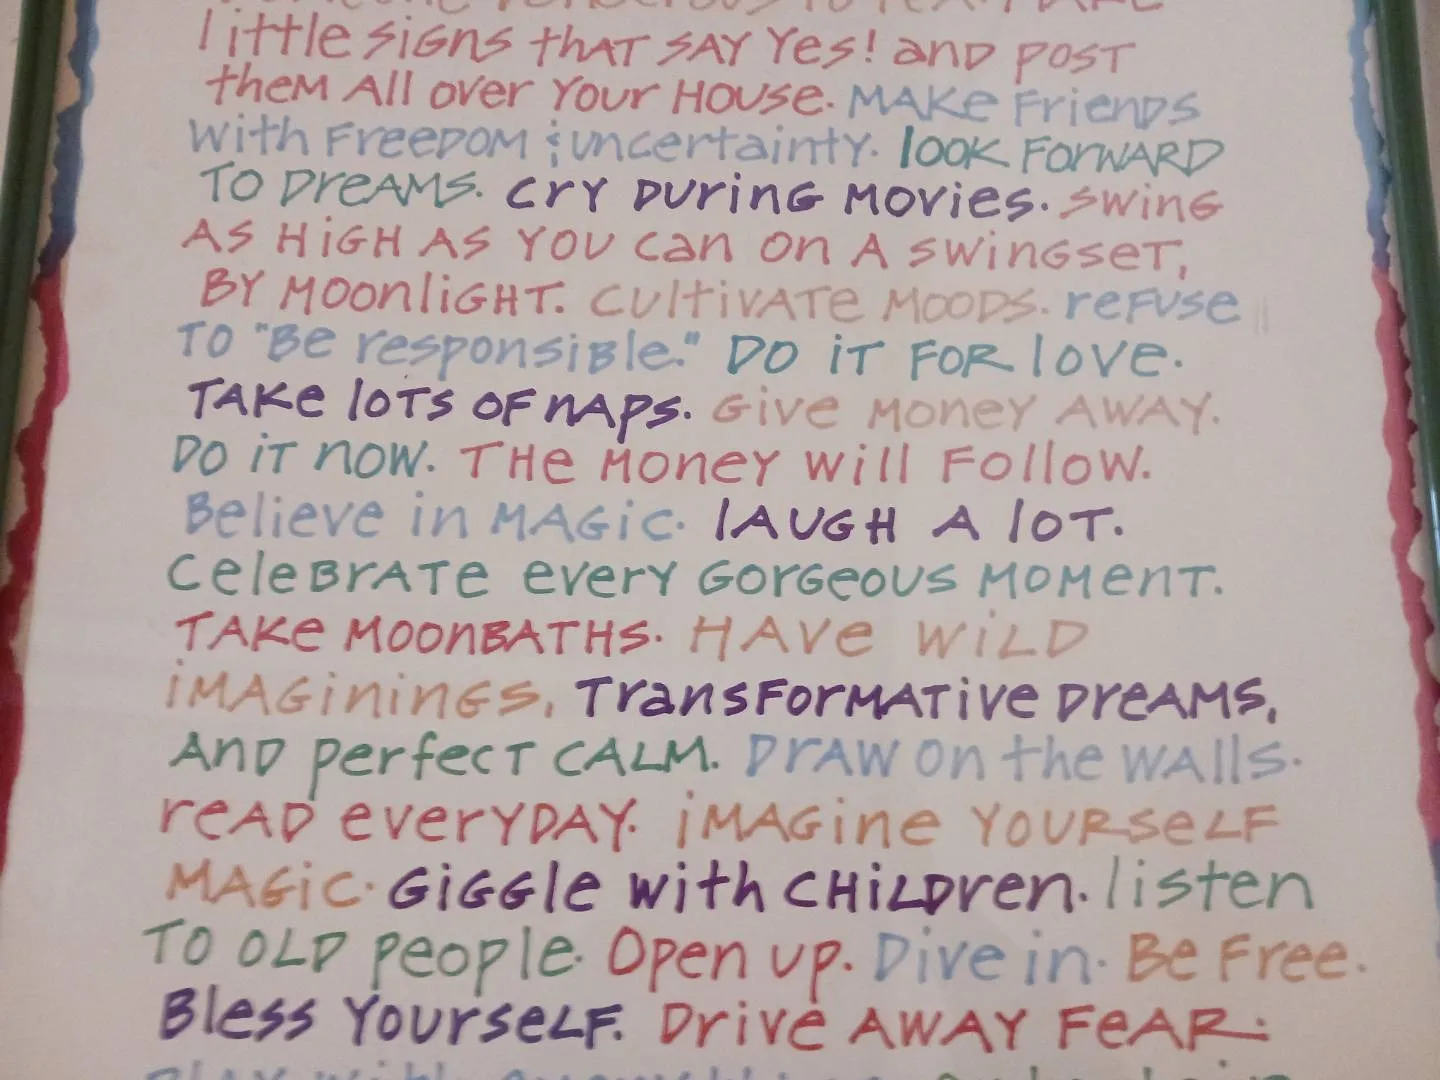 little signs that say Yes! and post
them All over Your House. Make Friends
with Freedom & uncertainty. look forward
To Dreams. Cry During Movies. Swing
As High As You can on A swingset,
By Moonlight. Cultivate Moods. refuse
To "Be responsible." Do it for love.
Take lots of naps. Give Money Away.
Do it now. The Money will Follow.
Believe in Magic. laugh A lot.
Celebrate every Gorgeous Moment.
Take Moonbaths. Have wild
imaginings, Transformative Dreams,
And perfect Calm. Draw on the walls.
read everyday. imagine Yourself
Magic. Giggle with Children. listen
To old people. Open up. Dive in. Be Free.
Bless Yourself. Drive Away Fear.